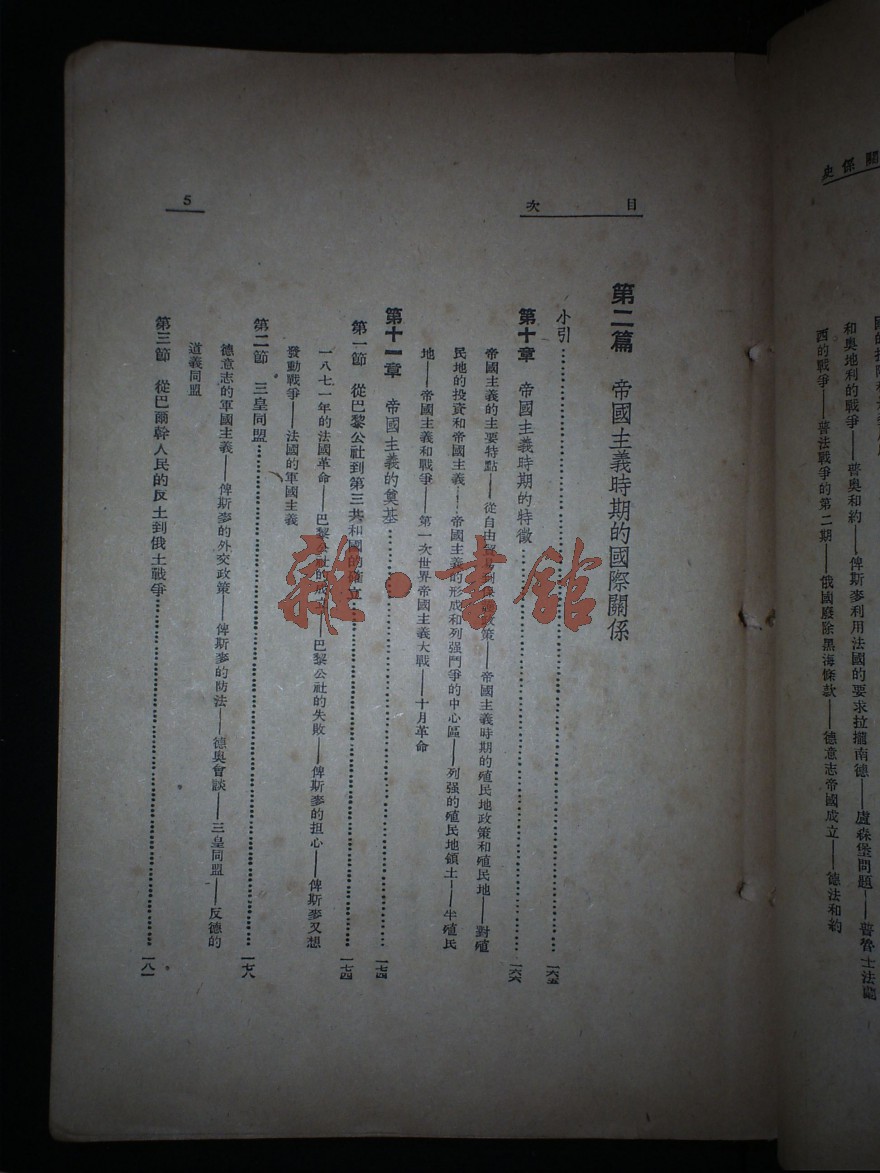 關係史
和奧地利的戰爭——普奧和約——俾斯麥利用法國的要求拉攏南德——盧森堡問題——普魯士法
西的戰爭——普法戰爭的第二期——俄國廢除黑海條款——德意志帝國成立——德法和約
目次
第二篇 帝國主義時期的國際關係
小引……一六五
第十章 帝國主義時期的特徵……一六六
帝國主義的主要特點——從自由貿易到保護政策——帝國主義時期的殖民地政策和殖民地——對殖
民地的投資和帝國主義——帝國主義的形成和列强鬥爭的中心區——列强的殖民地領土——半殖民
地——帝國主義和戰爭——第一次世界帝國主義大戰——十月革命
第十一章 帝國主義的奠基……一七四
第一節 從巴黎公社到第三共和國的確立……一七四
一八七一年的法國革命——巴黎公社的成立——巴黎公社的失敗——俾斯麥的担心——俾斯麥又想
發動戰爭——法國的軍國主義
第二節 三皇同盟……一七八
德意志的軍國主義——俾斯麥的外交政策——俾斯麥的防法——德奧會談——三皇同盟——反德的
道義同盟
第三節 從巴爾幹人民的反土到俄土戰爭……一八一
5
雜·書館